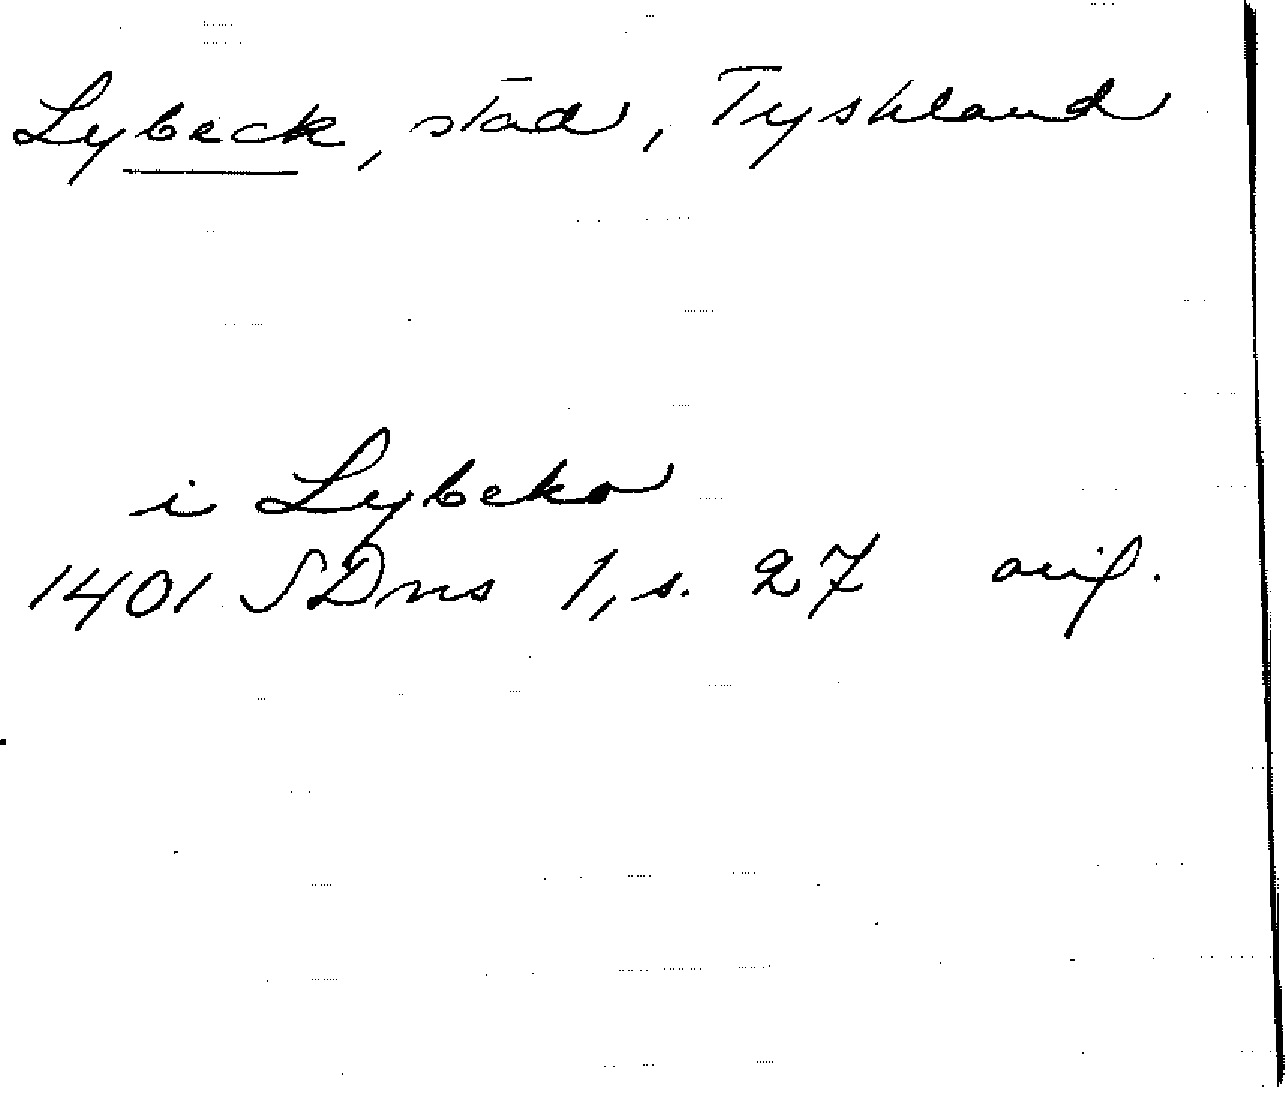 Lybeck, stad, Tyskland
i Lybeko
1401 SDns 1, s. 27 avif.